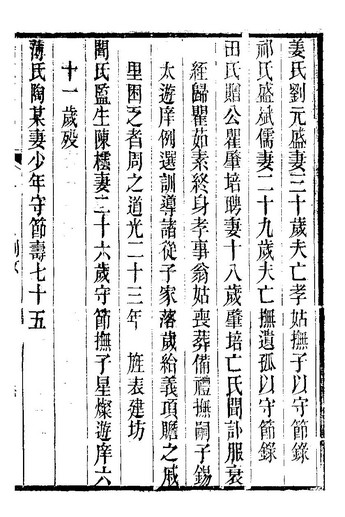 姜氏劉元盛妻三十歲夫亡孝姑撫子以守節錄
祁氏盛斌儒妻二十九歲夫亡撫遺孤以守節錄
田氏贈公瞿肇培聘妻十八歲肇培亡氏聞訃服衰
絰歸瞿茹素終身孝事翁姑喪葬備禮撫嗣子錫
太遊庠例選訓導諸從子家落歲給義項贍之戚
里困乏者周之道光二十三年 旌表建坊
閻氏監生陳檽妻二十六歲守節撫子星燦遊庠六
十一歲歿
薄氏陶某妻少年守節壽七十五